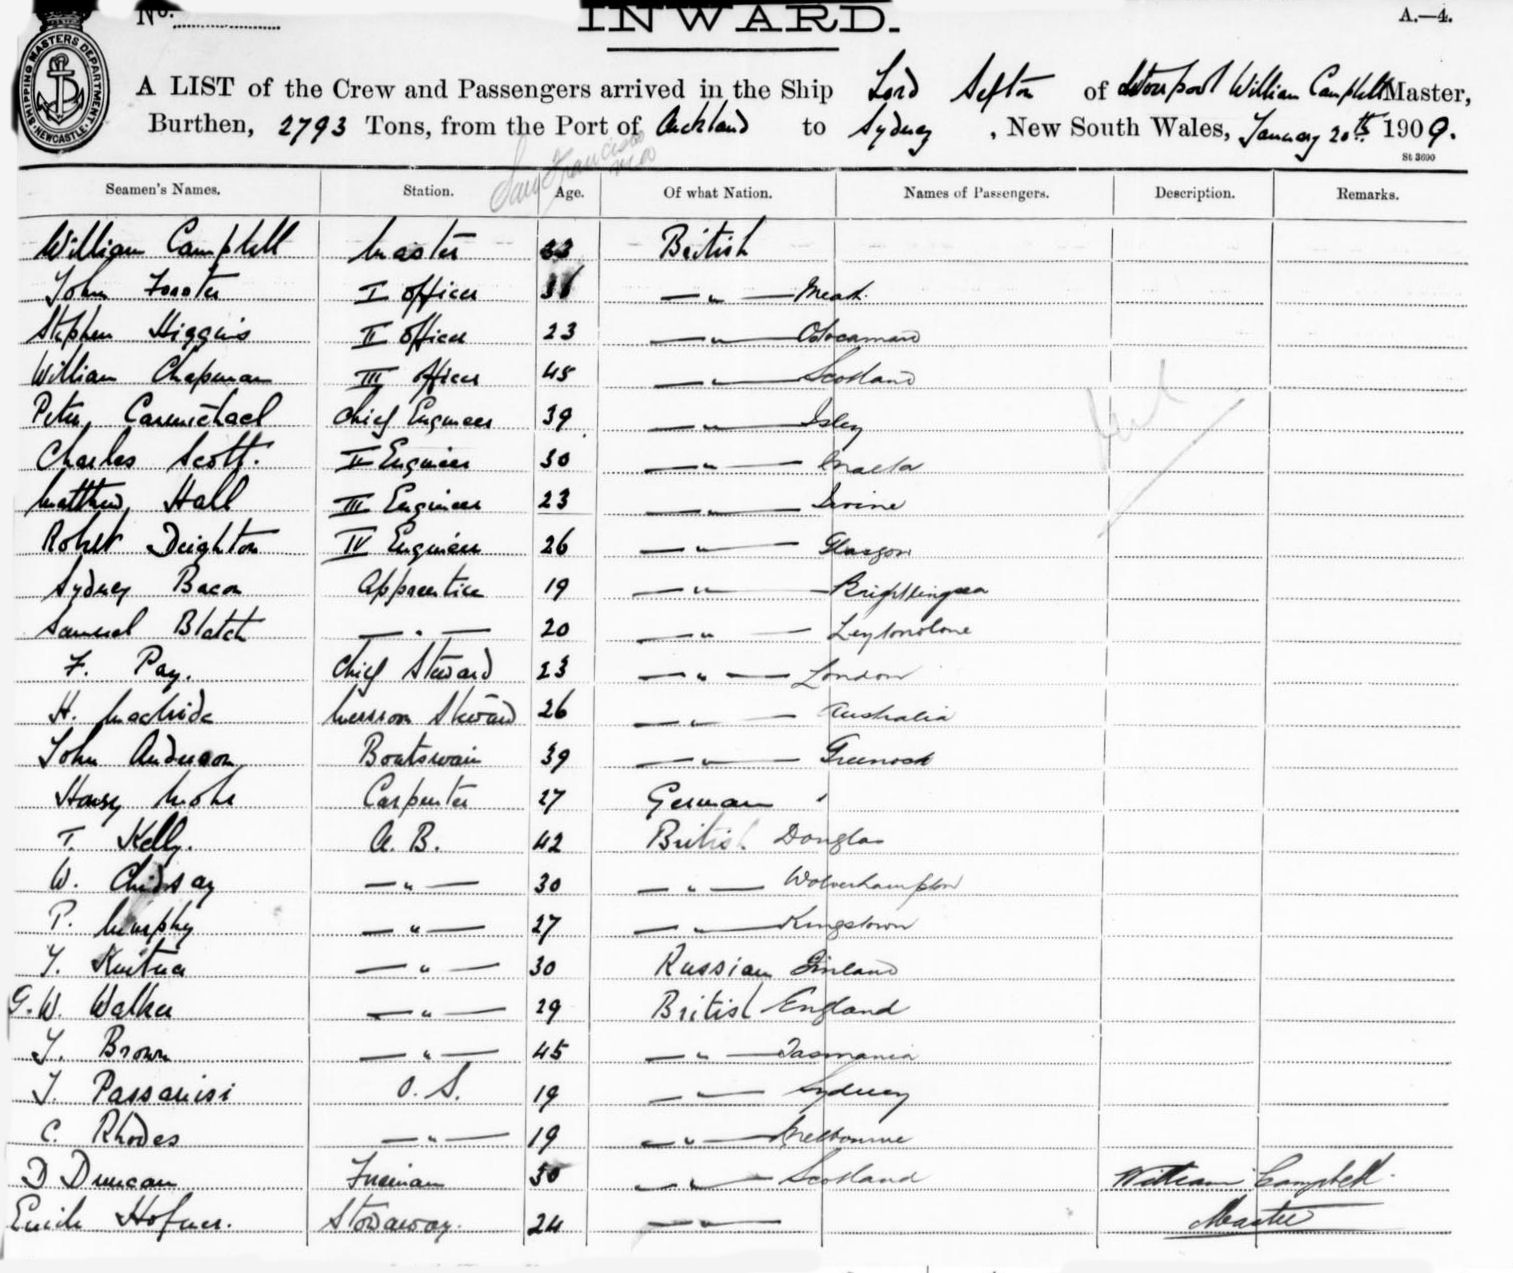 No.
INWARD.
A.—4.
SHIPPING MASTERS DEPARTMENT NEWCASTLE
A LIST of the Crew and Passengers arrived in the Ship Lord Sefton of William Campbell Master,
Burthen, 2793 Tons, from the Port of Auckland to Sydney, New South Wales, January 20th 1909.
San Francisco
St 3690
Seamen's Names. Station. Age. Of what Nation. Names of Passengers. Description. Remarks.
William Campbell Master 33 British
John Forster I officer — " —
Stephen Higgins II officer 23 — " —
William Chapman III officer 45 — " — Scotland
Peter Carmichael Chief Engineer 39 — " — Islay
Charles Scott. II Engineer 30 — " — Malta
Matthew Hall III Engineer 23 — " — Irvine
Robert Deighton IV Engineer 26 — " — Glasgow
Sydney Bacon Apprentice 19 — " — Brightlingsea
Samuel Blatch — " — 20 — " — Leytonstone
F. Pay. Chief Steward 23 — " — London
H. Messroom Steward 26 — " — Australia
John Anderson Boatswain 39 — " — Greenock
Mohr Carpenter 27 German
T. Kelly. A. B. 42 British Douglas
W. — " — 30 — " — Wolverhampton
P. Murphy — " — 27 — " — Kingstown
— " — 30 Russian Finland
G. W. Walker — " — 29 British England
Brown — " — 45 — " — Tasmania
O. S. 19 — " — Sydney
C. Rhodes — " — 19 — " — Melbourne
D Duncan Fireman 50 — " — Scotland William Campbell
Emile Hofner. Stowaway. 24 — " — Master